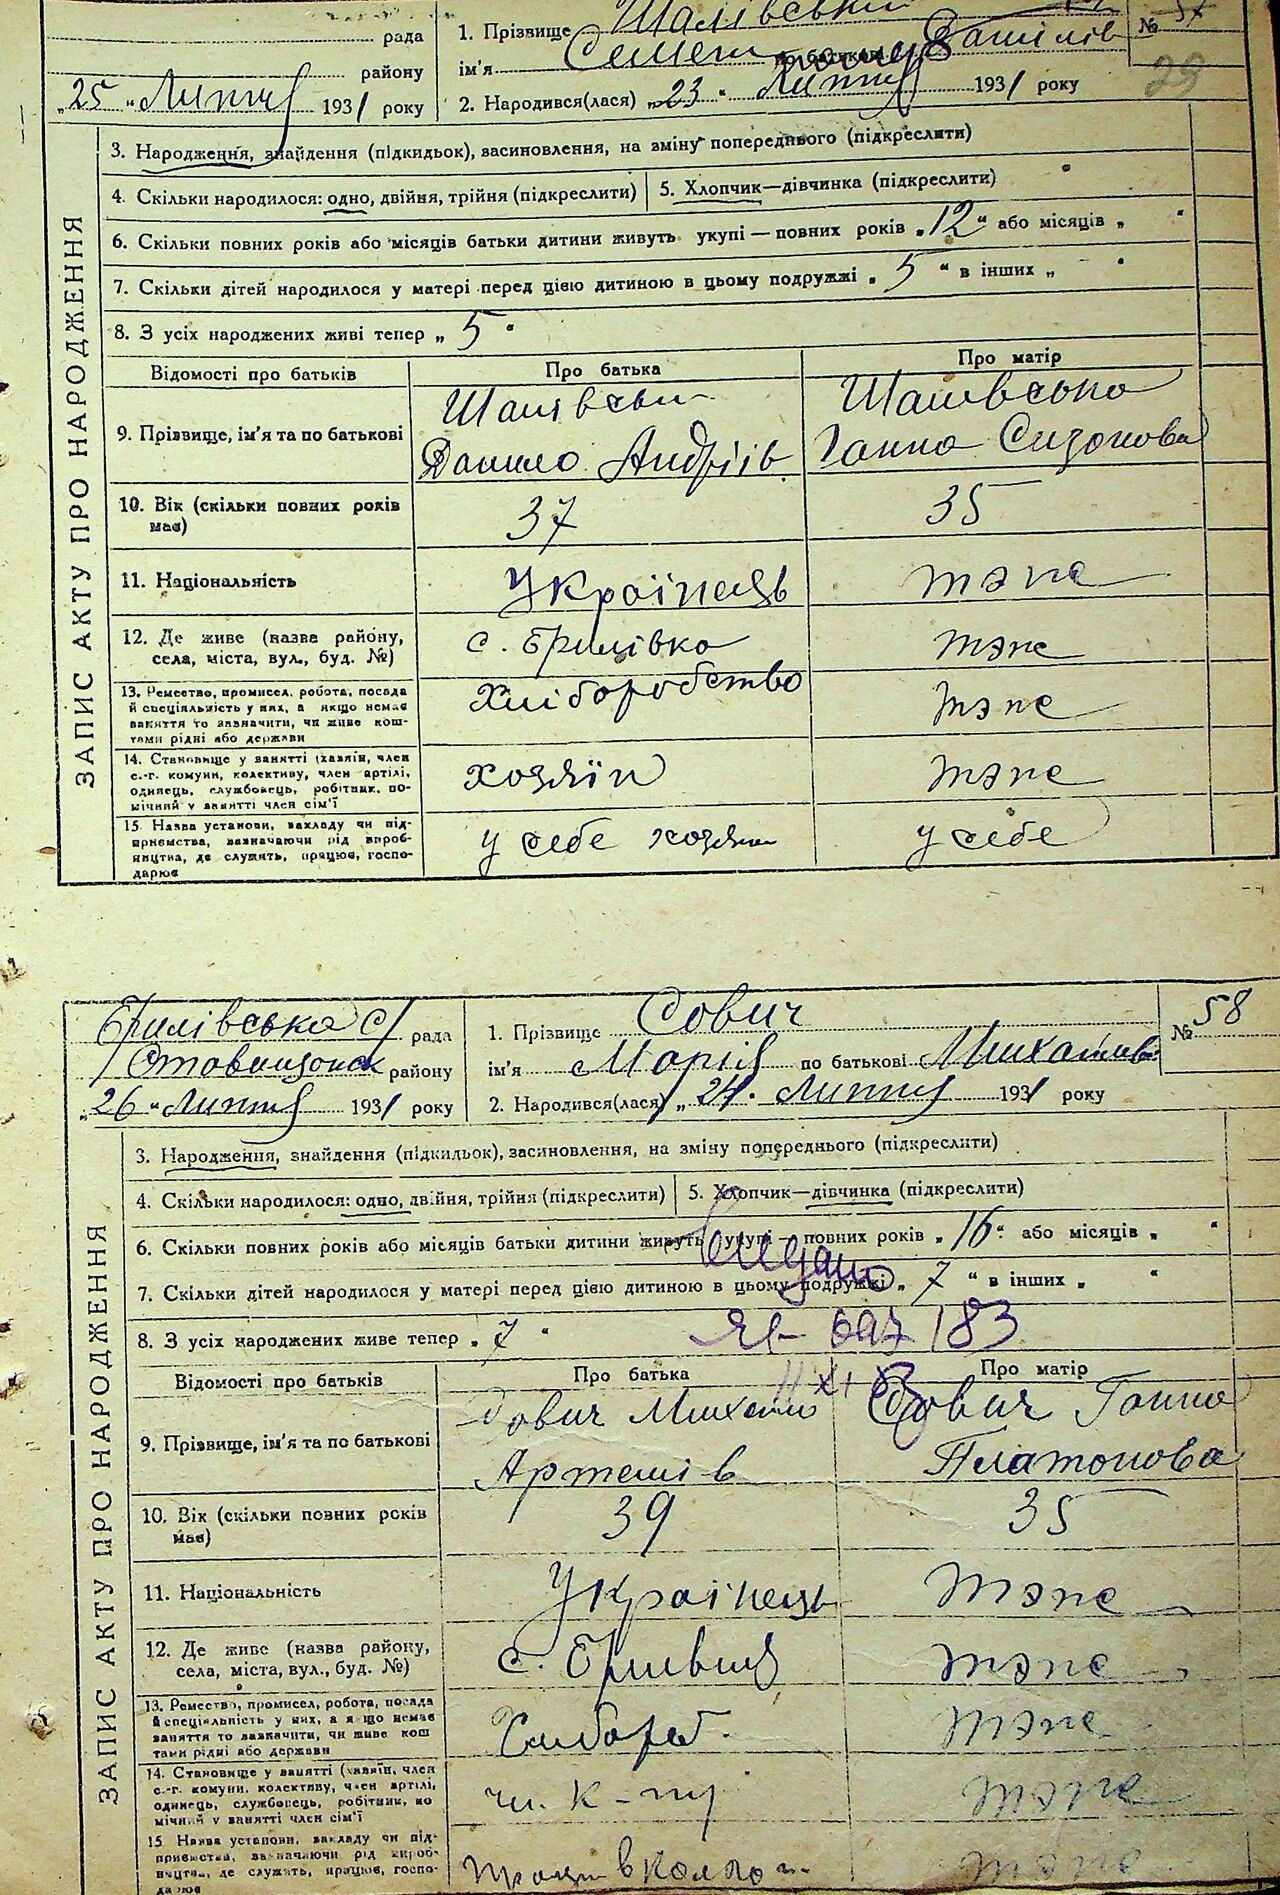 рада
1. Прізвище Шалівський
№ 57
району
ім'я Семен по батькові Данилів
29
„25" Липня 1931 року
2. Народився(лася) „23" Липня 1931 року
ЗАПИС АКТУ ПРО НАРОДЖЕННЯ
3. Народження, знайдення (підкидьок), засиновлення, на зміну попереднього (підкреслити)
4. Скільки народилося: одно, двійня, трійня (підкреслити)
5. Хлопчик—дівчинка (підкреслити)
6. Скільки повних років або місяців батьки дитини живуть укупі — повних років „12" або місяців „ "
7. Скільки дітей народилося у матері перед цією дитиною в цьому подружжі „ 5 " в інших „ "
8. З усіх народжених живі тепер „ 5 "
Відомості про батьків
Про батька
Про матір
9. Прізвище, ім'я та по батькові
Шалівськи
Данило Андріів
Шалівська
Ганна Сизонова
10. Вік (скільки повних років
має)
37
35
11. Національність
Українець
тэпе
12. Де живе (назва району,
села, міста, вул., буд. №)
с.
тэпе
13. Ремество, промисел, робота, посада
й спеціяльність у них, а якщо немає
заняття то зазначити, чи живе кош-
тами рідні або держави
Хліборобство
тэпе
14. Становище у занятті (хазяїн, член
с.-г. комуни, колективу, член артілі,
одинець, службовець, робітник, по-
мічний у занятті член сім'ї
хозяїн
тэпе
15. Назва установи, закладу чи під-
приємства, зазначаючи рід вироб-
ництва, де служить, працює, госпо-
дарює
у себе
у себе
рада
1. Прізвище Сович
№ 58
району
ім'я Марія по батькові Михайлів
„26" Липня 1931 року
2. Народився(лася) „24" Липня 1931 року
ЗАПИС АКТУ ПРО НАРОДЖЕННЯ
3. Народження, знайдення (підкидьок), засиновлення, на зміну попереднього (підкреслити)
4. Скільки народилося: одно, двійня, трійня (підкреслити)
5. Хлопчик—дівчинка (підкреслити)
6. Скільки повних років або місяців батьки дитини живуть укупі — повних років „16" або місяців „ "
7. Скільки дітей народилося у матері перед цією дитиною в цьому подружжі „ 7 " в інших „ "
8. З усіх народжених живе тепер „ 7 "
183
Відомості про батьків
Про батька
Про матір
9. Прізвище, ім'я та по батькові
Сович Михайло
Артемів
Сович Ганна
Платонова
10. Вік (скільки повних років
має)
39
35
11. Національність
Українець
тэпе
12. Де живе (назва району,
села, міста, вул., буд. №)
с.
тэпе
13. Ремество, промисел, робота, посада
й спеціяльність у них, а якщо немає
заняття то зазначити, чи живе кош
тами рідні або держави
Хлібороб.
тэпе
14. Становище у занятті (хазяїн, член
с.-г. комуни, колективу, член артілі,
одинець, службовець, робітник, по
мічний у занятті член сім'ї
чл. к-ту
тэпе
15. Назва установи, закладу чи під-
приємства, зазначаючи рід вироб-
ництва, де служить, працює, госпо-
дарює
тэпе